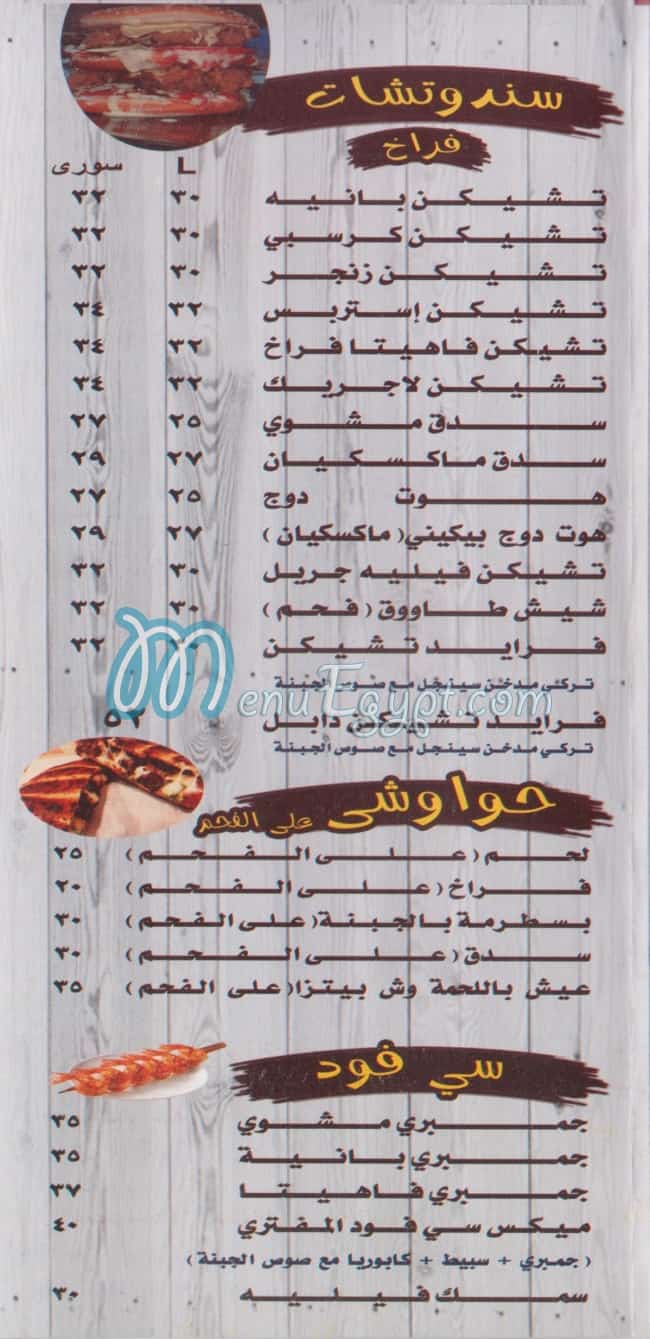 سندوتشات
فراخ
L سورى
تشيكن بانيه ٣٠ ٣٢
تشيكن كرسبي ٣٠ ٣٢
تشيكن زنجر ٣٠ ٣٢
تشيكن إستربس ٣٢ ٣٤
تشيكن فاهيتا فراخ ٣٢ ٣٤
تشيكن لاجريك ٣٢ ٣٤
سدق مشوي ٢٥ ٢٧
سدق ماكسكيان ٢٧ ٢٩
هوت دوج ٢٥ ٢٧
هوت دوج بيكيني( ماكسكيان ) ٢٧ ٢٩
تشيكن فيليه جريل ٣٠ ٣٢
شيش طاووق ( فحم ) ٣٠ ٣٢
فرايد تشيكن ٣٢
تركي مدخن سينجل مع صوص الجبنة
فرايد تشيكن دابل ٥٢
تركي مدخن سينجل مع صوص الجبنة
MenuEgypt.com
حواوشى على الفحم
لحم ( على الفحم ) ٢٥
فراخ ( على الفحم ) ٢٠
بسطرمة بالجبنة ( على الفحم ) ٣٠
سدق ( على الفحم ) ٣٠
عيش باللحمة وش بيتزا( على الفحم ) ٣٥
سي فود
جمبري مشوي ٣٥
جمبري بانية ٣٥
جمبري فاهيتا ٣٧
ميكس سي فود المفتري ٤٠
( جمبري + سبيط + كابوريا مع صوص الجبنة )
سمك فيليه ٣٠